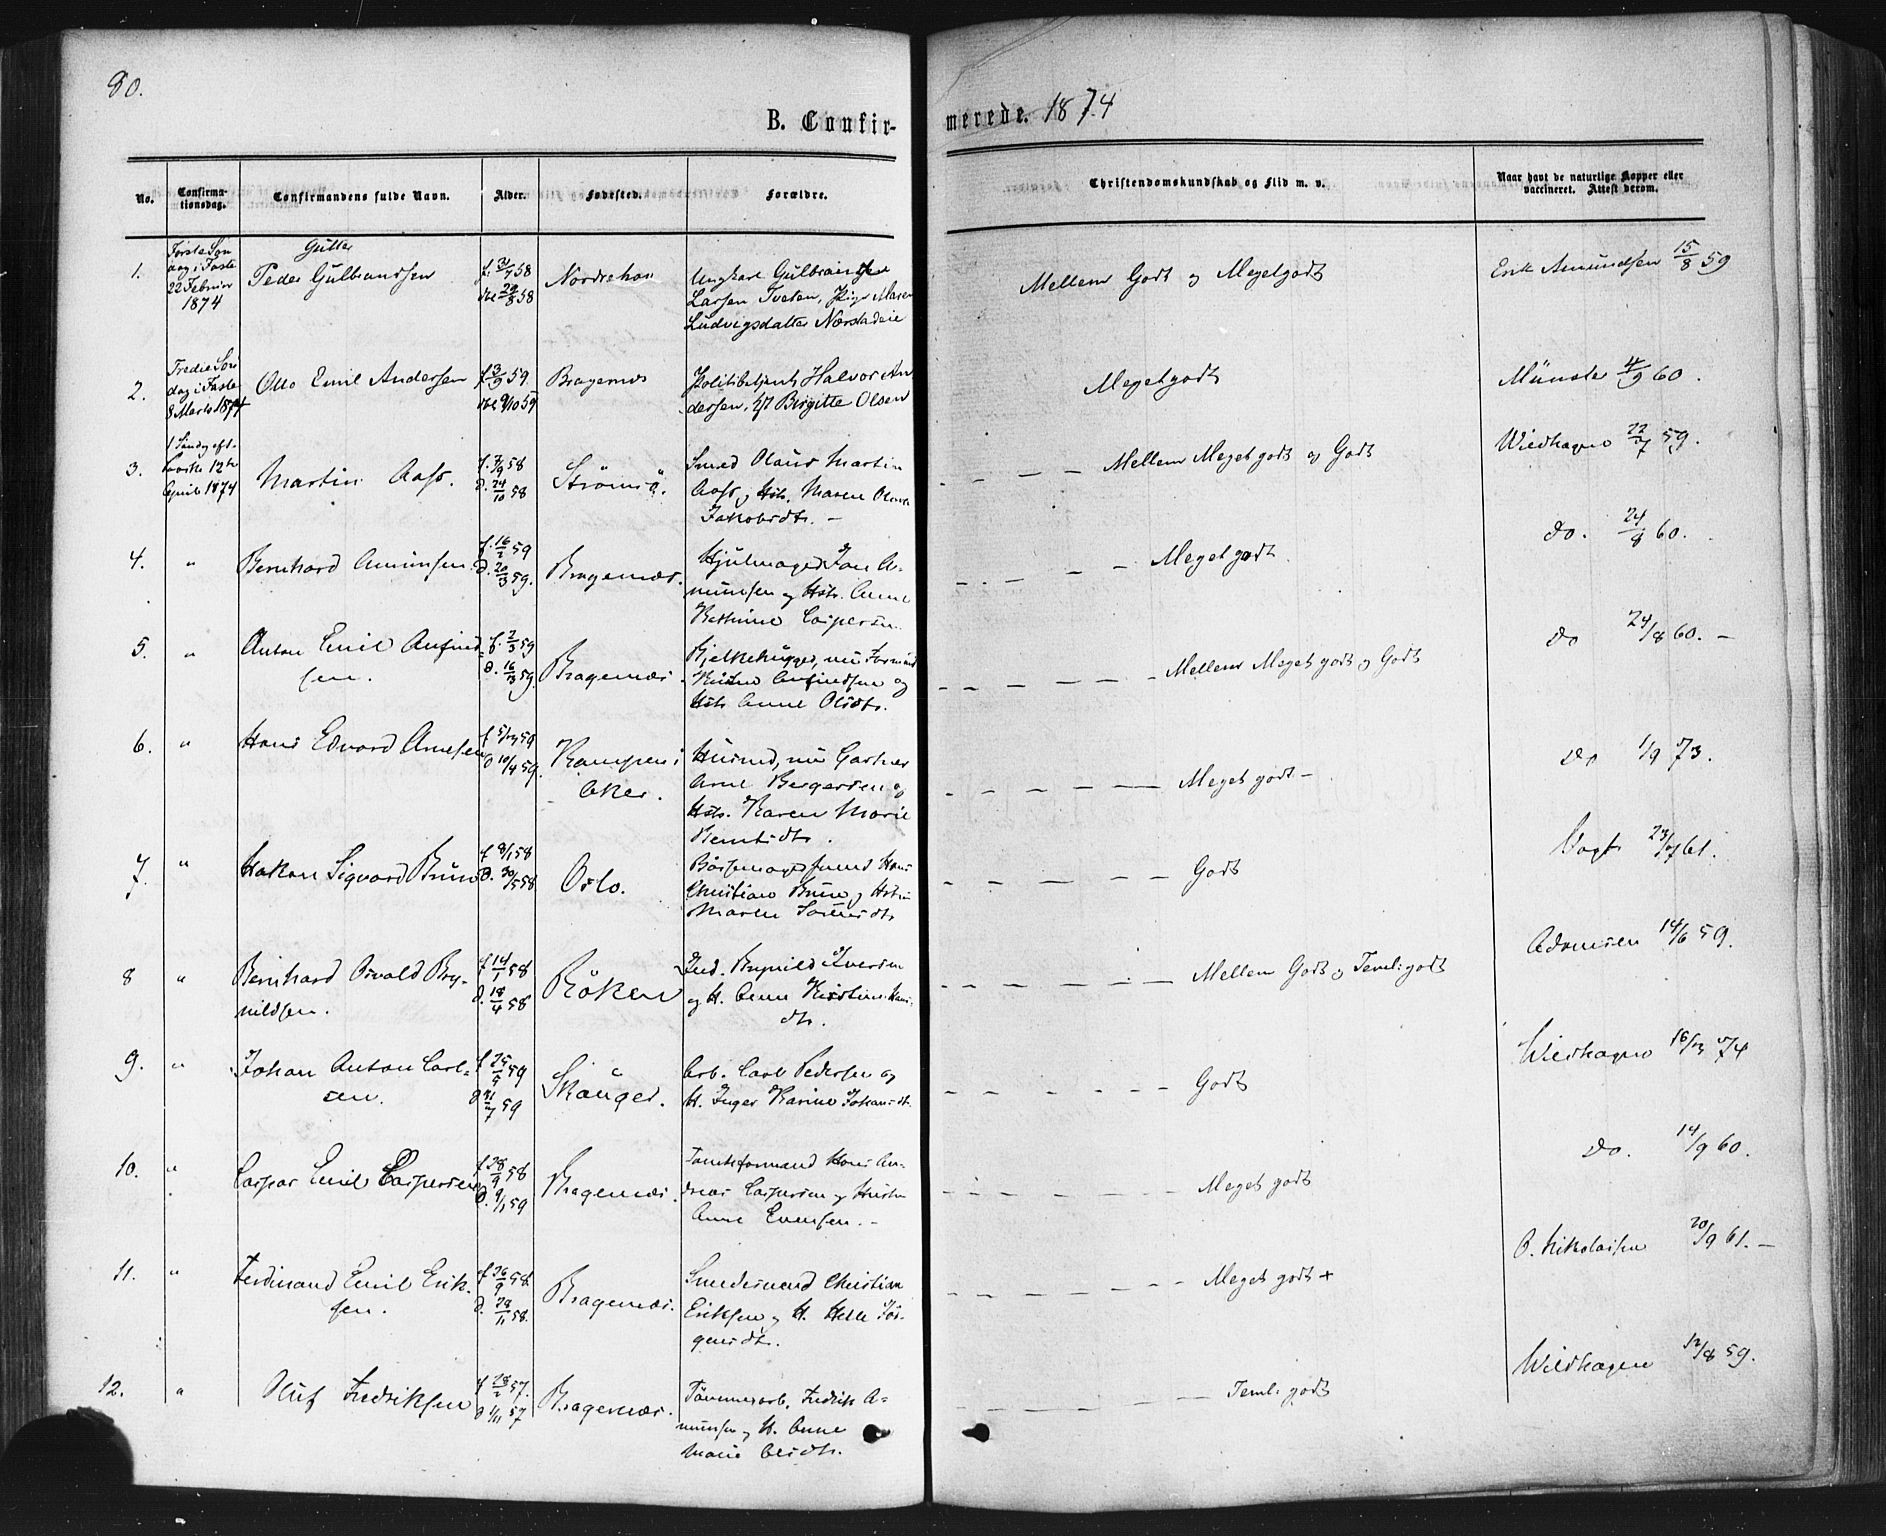 80.
B. Confir-
merede. 1874
No.
Confirma-
tionsdag.
Confirmandens fulde Navn.
Alder.
Fødested.
Forældre.
Christendomskundskab og Flid m. v.
Naar havt de naturlige Kopper eller
vaccineret. Attest derom.
Gutter
1.
Første Søn
dag i Faste
22 Februar
1874
Peder Gulbrandsen
f. 3/7 58
29/8 58
Norderhov
Ungkarl Gulbrand
Larsen Tveten, Pige Maren
Ludvigsdatter
Mellem Godt og Megetgodt
Erik Amundsen 15/8 59
2.
Tredie Søn
dag i Faste
8 Marts 1874
Otto Emil Andersen
f 3/9 59.
9/10 59
Bragernes
Politibetjent Halvor An
dersen, Birgitte Olsen
Megetgodt
Münster 4/9 60.
3.
1 Søndag eft.
12te
April 1874
Martin Aass.
f. 7/9 58
D. 24/10 58
Strømsö.
Smed Olaus Martin
Aass og Hst. Maren
Jakobsdt. –
Mellem Meget godt og Godt
Wildhagen 22/7 59.
4.
"
Bernhard Amunsen.
f. 16/2 59
D. 20/3 59.
Bragernæs.
Hjulmager A-
munsen og Hst. Anne
Caspersen.
Meget godt.
do. 24/8 60.
5.
"
Anton Emil Anfind-
sen.
f. 2/3 59
D. 59.
Bragernæs.
Bjelkehugger, nu
Anfindsen og
Hst. Anne Olsdt.
Mellem Meget godt og Godt
do 24/8 60. –
6.
"
Hans Edvard Arnesen
f 59
D 10/4 59.
Kampen i
Aker.
Husmd, nu Gartner
Arne Bergersen og
Hst. Karen Marie
Berntsdt.
Meget godt –
do 1/9 73.
7.
"
Hakon Sigvard Bruun
f 8/1 58
D. 30/5 58
Oslo.
Bössemagersvend Hans
Christian Bruun og Hst
Maren
Godt
Vogt 23/7 61.
8
"
Bernhard Osvald Bry-
nildsen.
f 14/1 58
D. 18/4 58
Röken
Ind. Brynild Iversen
og H. Anne Kirstine Hans-
dt.
Mellem Godt og Teml. godt
Adamsen 14/6 59.
9.
"
Johan Anton Carl-
sen.
f 25/5 59
D 31/7 59
Skauger.
Arb. Carl Pedersen og
H. Inger Karine Johansdt.
Godt
Wildhagen 74
10.
"
Caspar Emil Caspersen
f 28/9 58
D. 9/1 59
Bragernæs.
Tomteformand Hans An-
dreas Caspersen og Hustru
Anne Evensen. –
Meget godt
do. 14/9 60.
11.
"
Ferdinand Emil Erik-
sen.
f 26/9 58.
D. 28/11 58.
Bragernæs.
Smedesvend Christian
Eriksen og H. Helle Jör-
gensdt.
Meget godt +
O. Nikolaisen 20/9 61. –
12.
"
Oluf Fredriksen
f 28/2 57.
D 1/11 57
Bragernæs.
Tömmerarb. Fredrik A-
munsen og H. Anne
Marie
Teml. godt
Wildhagen 12/8 59.